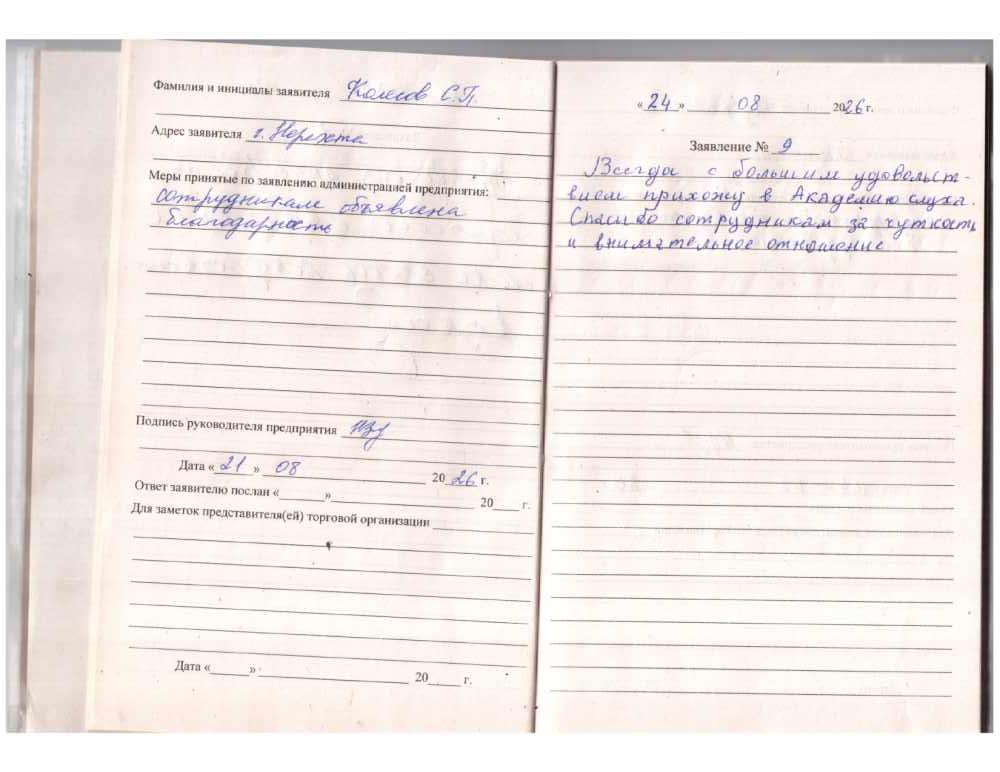 Фамилия и инициалы заявителя Колесов С.П.
Адрес заявителя г. Нерехта
Меры принятые по заявлению администрацией предприятия:
сотрудникам объявлена
благодарность
Подпись руководителя предприятия
Дата «21» 08 2026 г.
Ответ заявителю послан «______»____________ 20____ г.
Для заметок представителя(ей) торговой организации
Дата «______» ____________ 20_____ г.
«24» 08 2026 г.
Заявление № 9
Всегда с большим удовольст-
вием прихожу в Академию слуха.
Спасибо сотрудникам за чуткость
и внимательное отношение